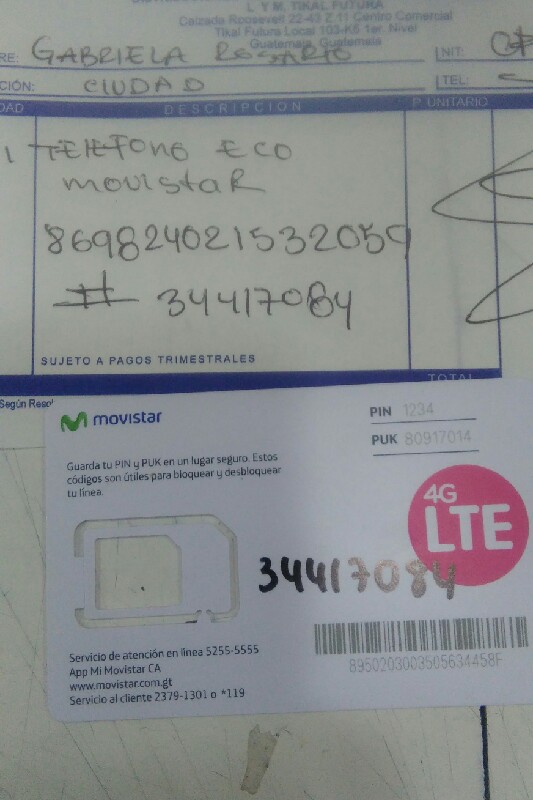 L Y M. TIKAL FUTURA
Calzada Roosevelt 22-43 Z.11 Centro Comercial
Tikal Futura Local 103-K5 1er. Nivel
Guatemala, Guatemala
RE: GABRIELA ROSARIO NIT:
CIÓN: CIUDAD TEL:
DAD DESCRIPCION P. UNITARIO
1 TELEFONO ECO
movistaR
869824021532059
# 34417084
SUJETO A PAGOS TRIMESTRALES
TOTAL
Según Resol
movistar
PIN 1234
PUK 80917014
Guarda tu PIN y PUK en un lugar seguro. Estos
códigos son útiles para bloquear y desbloquear
tu línea.
4G
LTE
34417084
Servicio de atención en línea 5255-5555
App Mi Movistar CA
www.movistar.com.gt
Servicio al cliente 2379-1301 o *119
8950203003505634458F